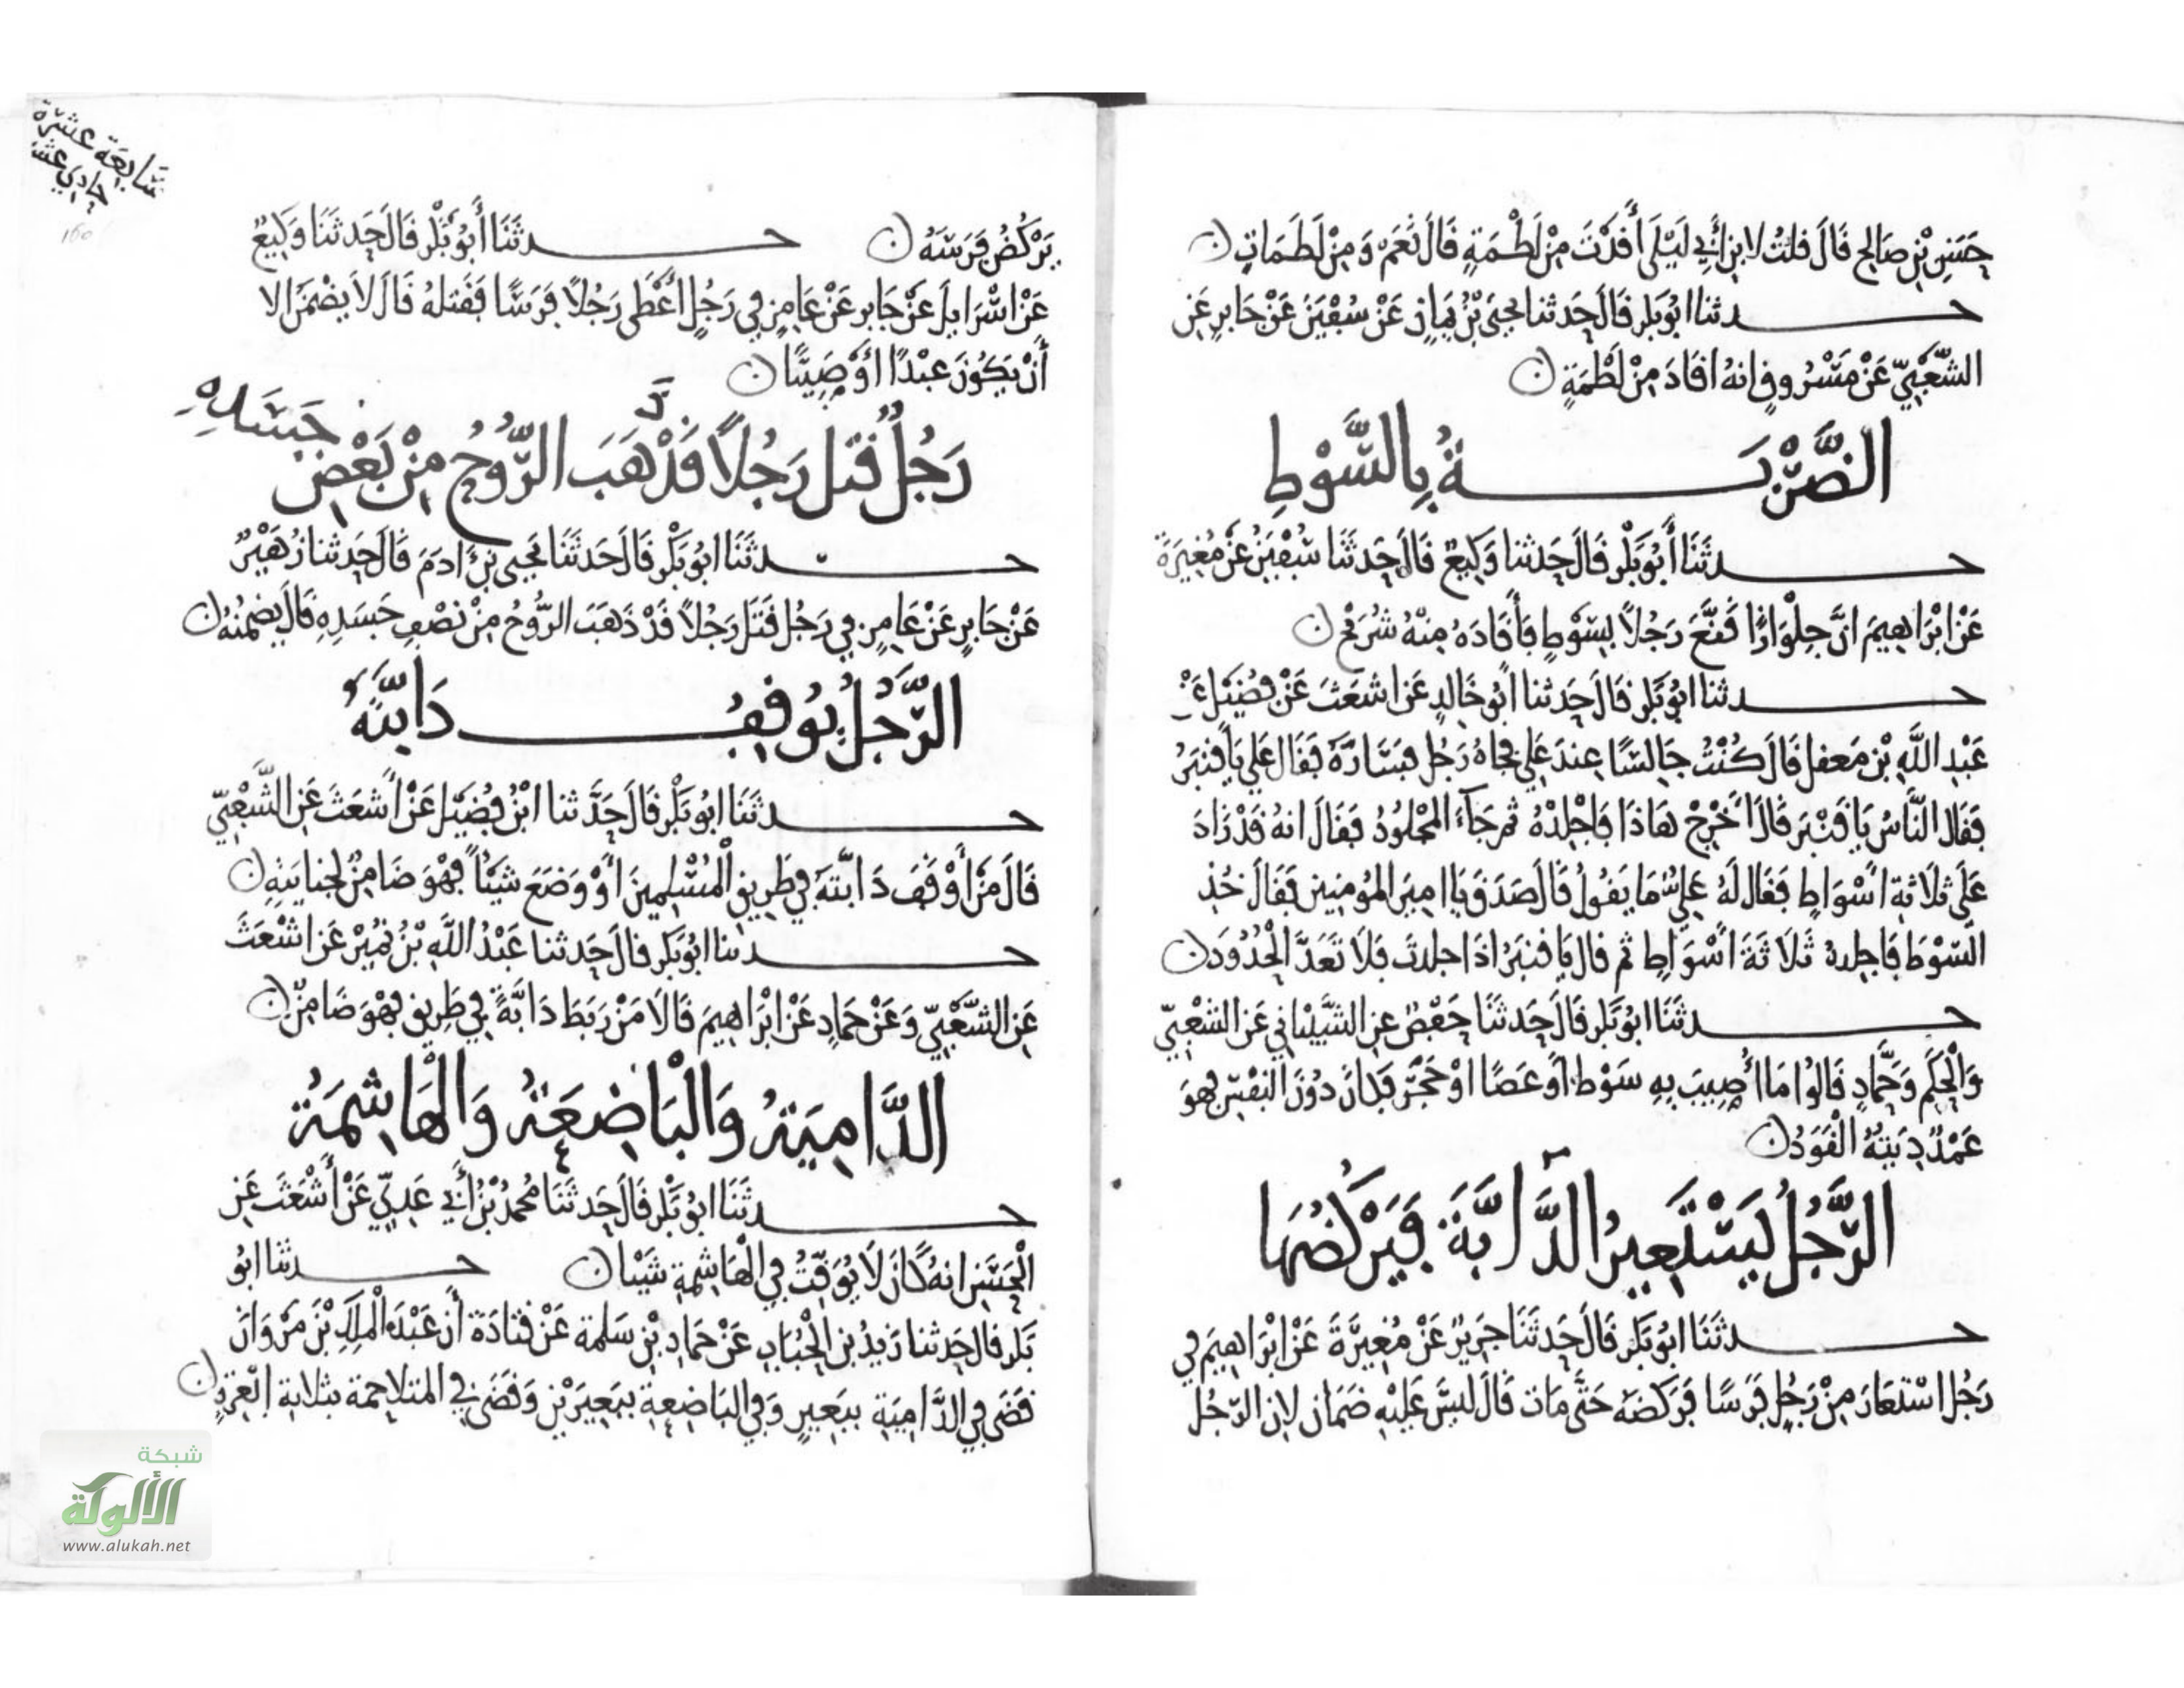 حسن بن صالح قال قلت لابن أبي ليلى أقدت من لطمة قال نعم ومن لطمات
حدثنا ابو بكر قال حدثنا يحيى بن يمان عن سفين عن جابر عن
الشعبي عن مسروق انه اقاد من لطمة
الضربة بالسوط
حدثنا أبو بكر قال حدثنا وكيع قال حدثنا سفين عن مغيرة
عن ابراهيم ان جلوازا قنع رجلا بسوط فأقاده منه شريح
حدثنا ابو بكر قال حدثنا أبو خالد عن اشعث عن فضيل عن
عبد الله بن معقل قال كنت جالسا عند علي فجاه رجل فساره فقال علي يا قنبر
فقال الناس يا قنبر قال أخرج هاذا فاجلده ثم جاء المجلود فقال انه قد زاد
علي ثلاثة اسواط فقال له علي ما يقول قال صدق يا امير المومنين فقال خذ
السوط فاجلده ثلاثة أسواط ثم قال يا قنبر اذا جلدت فلا تعد الحدود
حدثنا ابو بكر قال حدثنا حفص عن الشيباني عن الشعبي
والحكم وحماد قالوا ما أصيب به سوط أو عصا او حجر فكان دون النفس فهو
عمد ديته القود
الرجل يستعير الدابة فيركضها
حدثنا ابو بكر قال حدثنا جرير عن مغيرة عن ابراهيم في
رجل استعار من رجل فرسا فركضه حتى مات قال ليس عليه ضمان لان الرجل
سابعة عشرة
حادي عشر
160
يركض فرسه حدثنا أبو بكر قال حدثنا وكيع
عن اسرايل عن جابر عن عامر في رجل أعطى رجلا فرسا فقتله قال لا يضمن الا
أن يكون عبدا أو صبيا
رجل قتل رجلا قد ذهب الروح من بعض جسده
حدثنا ابو بكر قال حدثنا يحيى بن ادم قال حدثنا زهير
عن جابر عن عامر في رجل قتل رجلا قد ذهب الروح من نصف جسده قال يضمنه
الرجل يوقف دابته
حدثنا ابو بكر قال حدثنا ابن فضيل عن أشعث عن الشعبي
قال من أوقف دابته في طريق المسلمين أو وضع شيئا فهو ضامن لجنايته
حدثنا ابو بكر قال حدثنا عبد الله بن نمير عن اشعث
عن الشعبي وعن حماد عن ابراهيم قالا من ربط دابة في طريق فهو ضامن
الدامية والباضعة والهاشمة
حدثنا ابو بكر قال حدثنا محمد بن أبي عدي عن أشعث عن
الحسن انه كان لا يوقت في الهاشمة شيا حدثنا ابو
بكر قال حدثنا زيد بن الحباب عن حماد بن سلمة عن قتادة أن عبد الملك بن مروان
قضى في الدامية ببعير وفي الباضعة ببعيرين وقضى في المتلاحمة بثلاثة ابعرة
شبكة
الألوكة
www.alukah.net